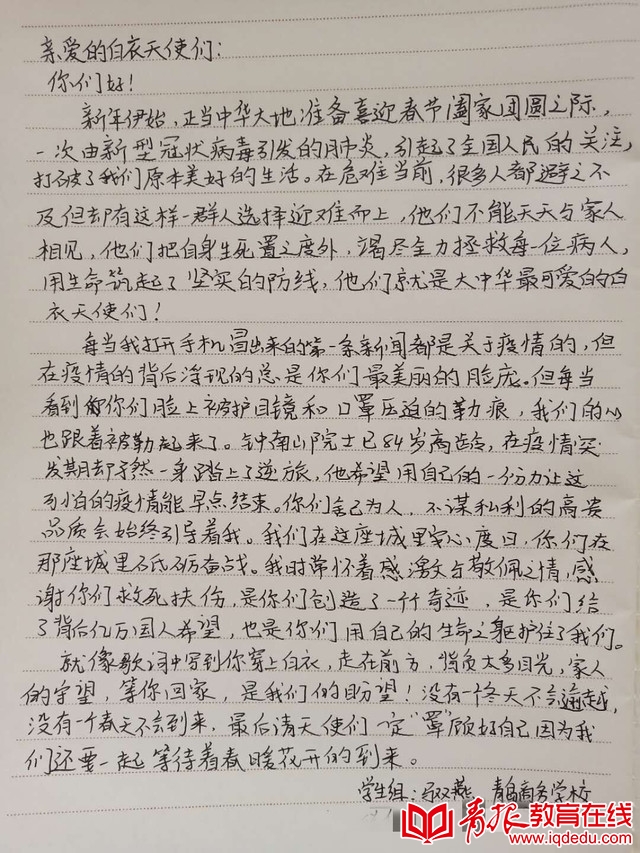 亲爱的白衣天使们：
你们好！
新年伊始，正当中华大地准备喜迎春节阖家团圆之际，
一次由新型冠状病毒引发的肺炎，引起了全国人民的关注，
打破了我们原本美好的生活。在危难当前，很多人都避之不
及但却有这样一群人选择迎难而上，他们不能天天与家人
相见，他们把自身生死置之度外，竭尽全力拯救每一位病人，
用生命筑起了坚实的防线，他们就是大中华最可爱的白
衣天使们！
每当我打开手机冒出来的第一条新闻都是关于疫情的，但
在疫情的背后浮现的总是你们最美丽的脸庞。但每当
看到你们脸上被护目镜和口罩压迫的勒痕，我们的心
也跟着被勒起来了。钟南山院士已84岁高龄，在疫情突
发期却孑然一身踏上了逆旅，他希望用自己的一份力让这
可怕的疫情能早点结束。你们舍己为人，不谋私利的高贵
品质会始终引导着我。我们在这座城里安心度日，你们在
那座城里砥砺奋战。我时常怀着感激与敬佩之情，感
谢你们救死扶伤，是你们创造了一个奇迹，是你们给
了背后亿万国人希望，也是你们用自己的生命之躯护住了我们。
就像歌词中写到你穿上白衣，走在前方，背负太多目光，家人
的守望，等你回家，是我们的盼望！没有一个冬天不会逾越，
没有一个春天不会到来，最后请天使们一定“罩”顾好自己因为我
们还要一起等待着春暖花开的到来。
学生组：双燕 青岛商务学校
青报教育在线
www.iqdedu.com